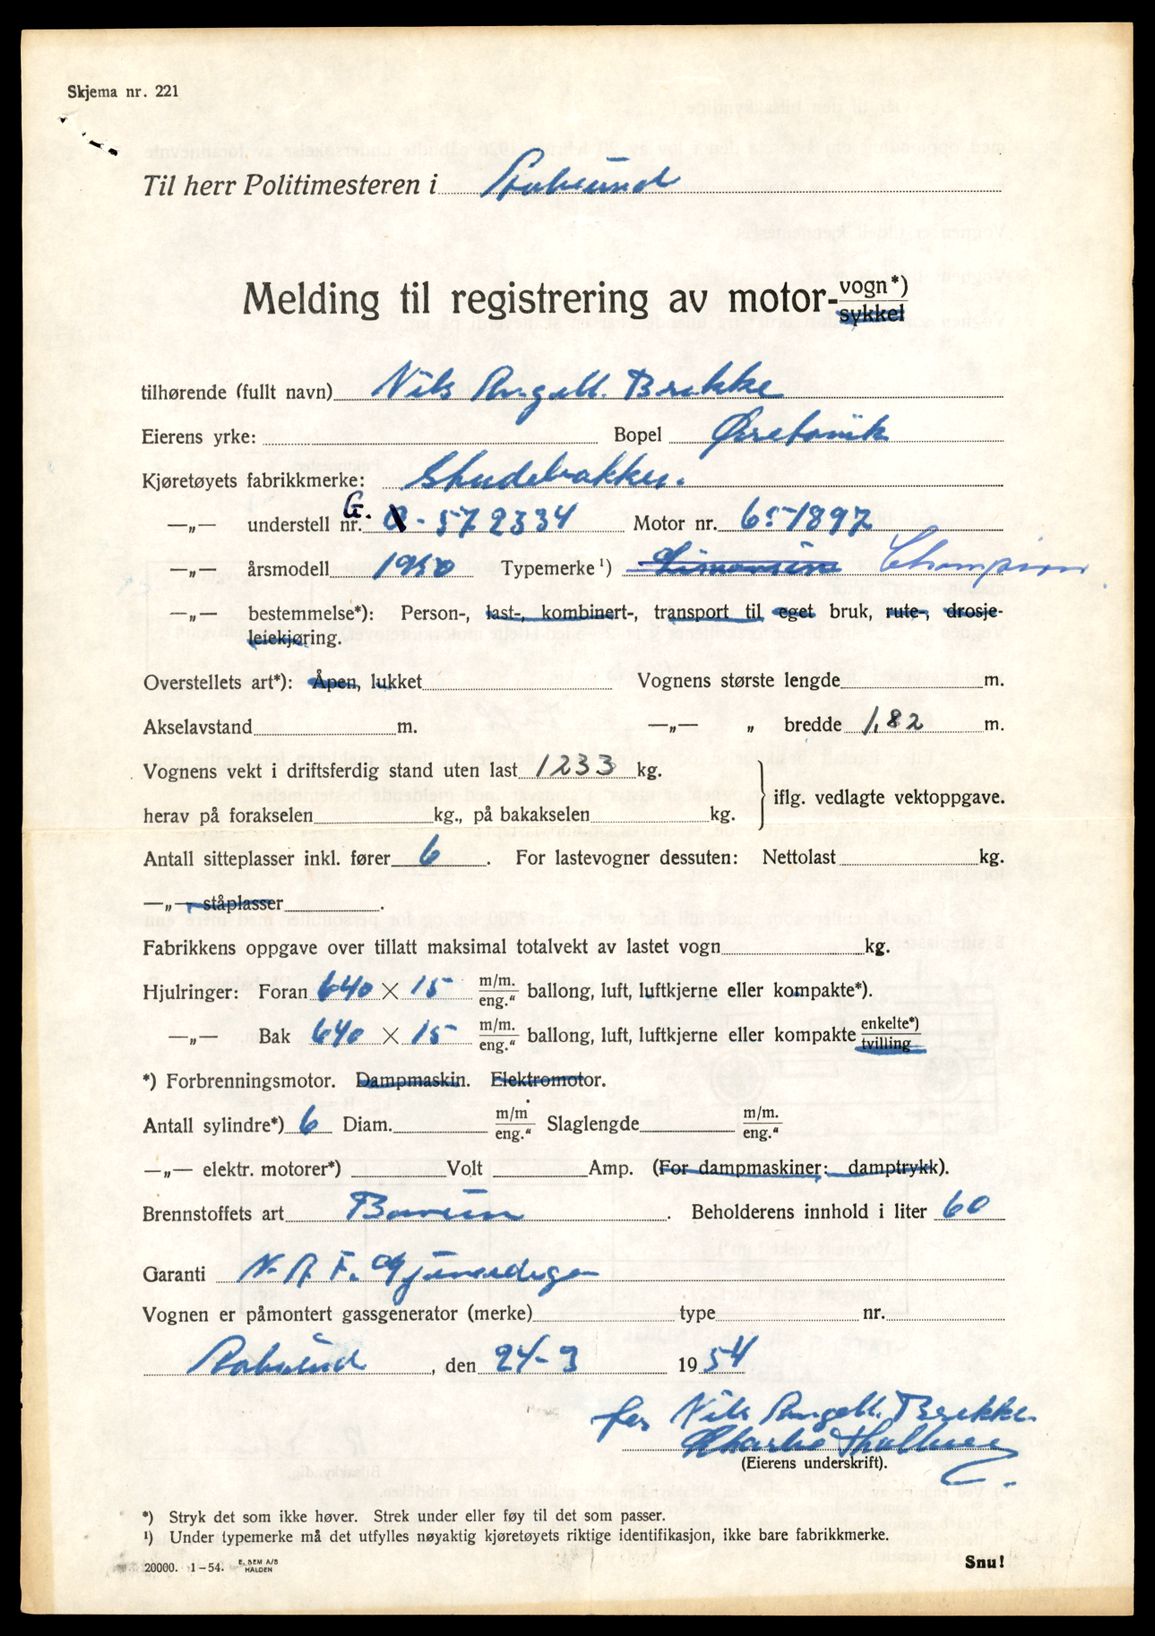 Skjema nr. 221
Til herr Politimesteren i
Melding til registrering av motor-vogn*)
sykkel
tilhørende (fullt navn) Nils Angell Brekke
Eierens yrke: Bopel Ørstavik
Kjøretøyets fabrikkmerke: Studebakker.
—„— understell nr. G. - 572334 Motor nr. 65-1897
—„— årsmodell 1950 Typemerke ¹) Limousine Champion
—„— bestemmelse*): Person-, last-, kombinert-, transport til eget bruk, rute-, drosje-
leiekjøring.
Overstellets art*): Åpen, lukket Vognens største lengde m.
Akselavstand m. —„— „ bredde 1,82 m.
Vognens vekt i driftsferdig stand uten last 1233 kg.
iflg. vedlagte vektoppgave.
herav på forakselen kg., på bakakselen kg.
Antall sitteplasser inkl. fører 6 . For lastevogner dessuten: Nettolast kg.
—„— ståplasser .
Fabrikkens oppgave over tillatt maksimal totalvekt av lastet vogn kg.
Hjulringer: Foran 640 × 15 m/m. eng.“ ballong, luft, luftkjerne eller kompakte*).
—„— Bak 640 × 15 m/m. eng.“ ballong, luft, luftkjerne eller kompakte enkelte*) tvilling
*) Forbrenningsmotor. Dampmaskin. Elektromotor.
Antall sylindre*) 6 Diam. m/m eng.“ Slaglengde m/m. eng.“
—„— elektr. motorer*) Volt Amp. (For dampmaskiner: damptrykk).
Brennstoffets art Bensin . Beholderens innhold i liter 60
Garanti N.A.F.
Vognen er påmontert gassgenerator (merke) type nr.
, den 24-3 1954
for Nils Angell Brekke
(Eierens underskrift).
*) Stryk det som ikke høver. Strek under eller føy til det som passer.
¹) Under typemerke må det utfylles nøyaktig kjøretøyets riktige identifikasjon, ikke bare fabrikkmerke.
20000. 1-54. E. SEM A/S HALDEN
Snu!